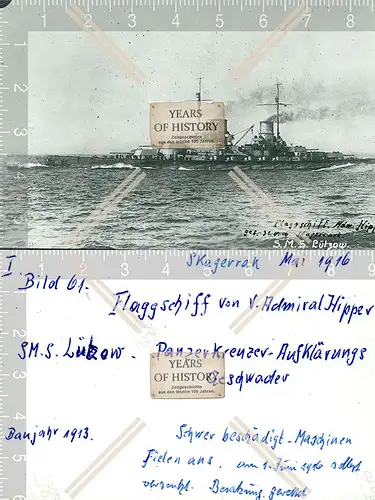 1 2 3 4 5 6 7 8
YEARS
OF HISTORY
Zeitgeschichte
aus den letzten 100 Jahren
Flaggschiff Adm. Hipp
S.M.S. Lützow.
1 2 3 4 5 6 7 8 9
I Skagerrak Mai 1916
Bild 61.
Flaggschiff von V. Admiral Hipper
S.M.S. Lützow. - Panzerkreuzer-Aufklärungs
Geschwader
YEARS
OF HISTORY
Zeitgeschichte
aus den letzten 100 Jahren
Baujahr 1913.
Schwer beschädigt - Maschinen
Fielen aus. am 1. Juni 1916 selbst
versenkt. Besatzung gerettet